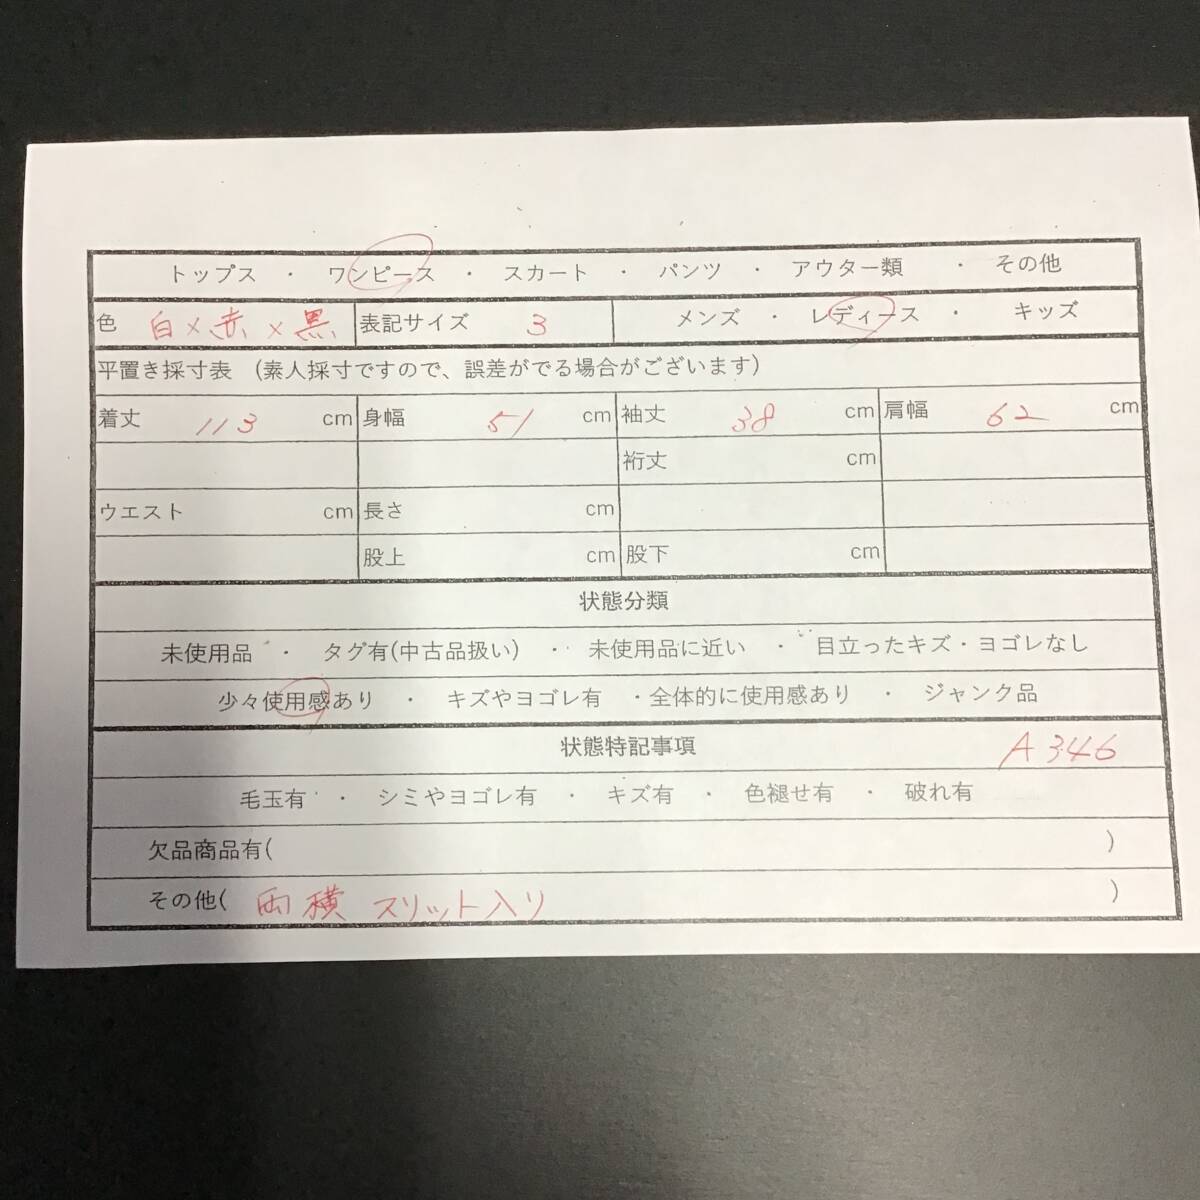 トップス ・ ワンピース ・ スカート ・ パンツ ・ アウター類 ・ その他
色 白×赤×黒 表記サイズ 3 メンズ ・ レディース ・ キッズ
平置き採寸表 (素人採寸ですので、誤差がでる場合がございます)
着丈 113 cm 身幅 51 cm 袖丈 38 cm 肩幅 62 cm
裄丈 cm
ウエスト cm 長さ cm
股上 cm 股下 cm
状態分類
未使用品 ・ タグ有(中古品扱い) ・ 未使用品に近い ・ 目立ったキズ・ヨゴレなし
少々使用感あり ・ キズやヨゴレ有 ・全体的に使用感あり ・ ジャンク品
状態特記事項 A346
毛玉有 ・ シミやヨゴレ有 ・ キズ有 ・ 色褪せ有 ・ 破れ有
欠品商品有( )
その他( 両横 スリット入り )